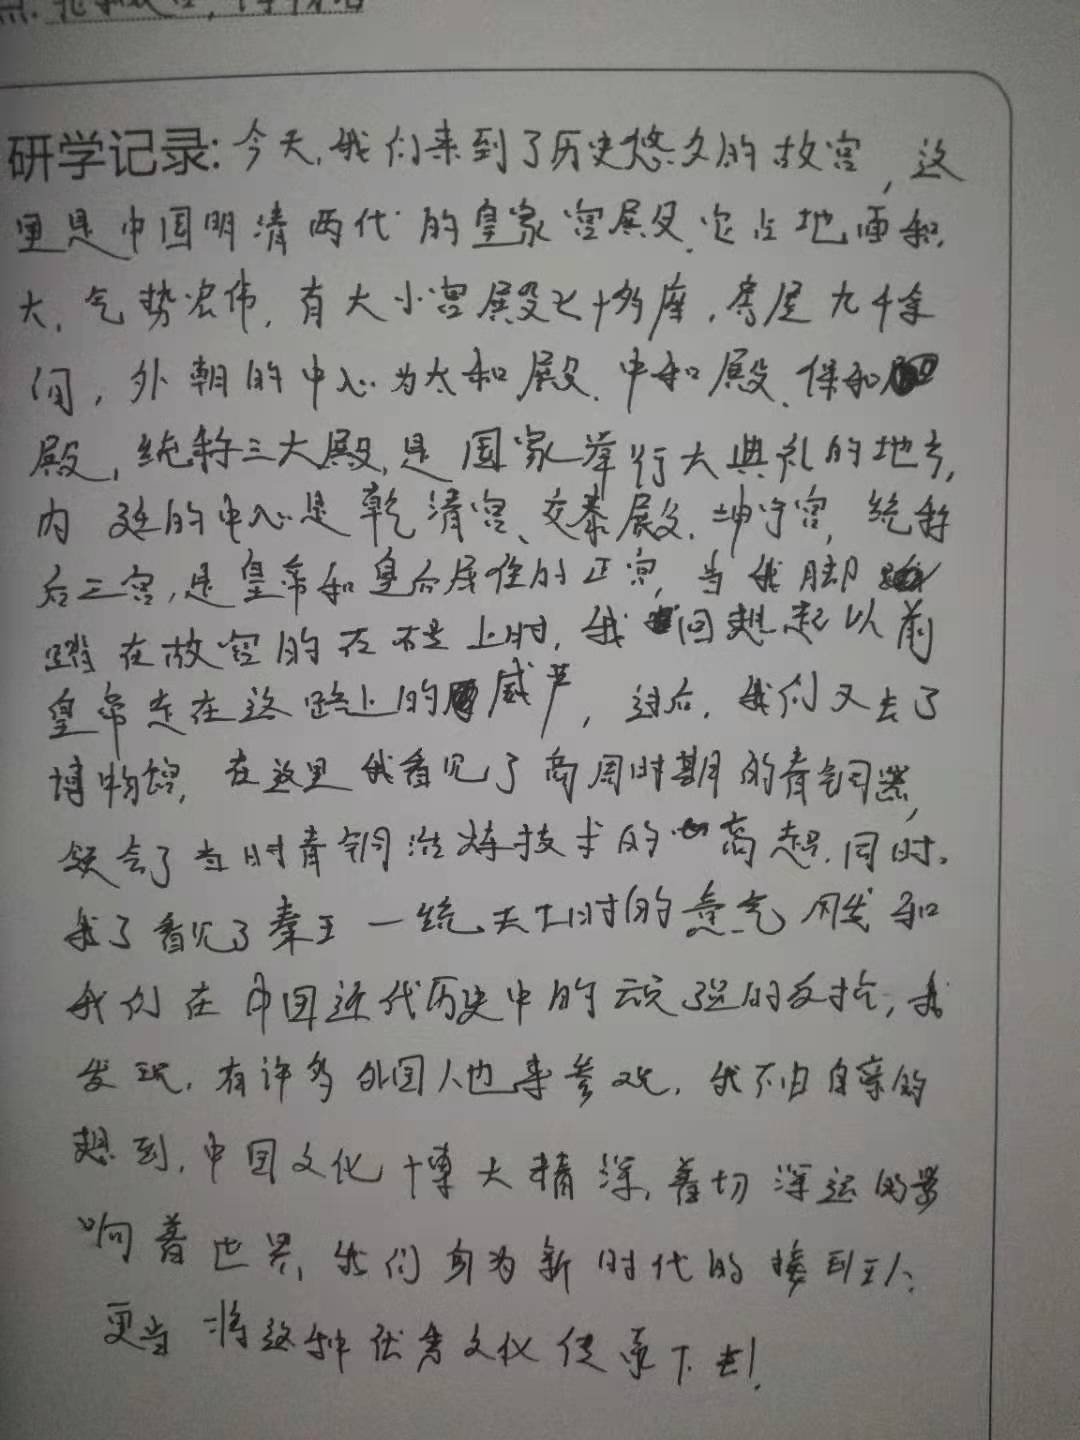 研学记录:今天,我们来到了历史悠久的故宫,这
里是中国明清两代的皇家宫殿,它占地面积
大,气势宏伟,有大小宫殿七十多座,房屋九千余
间,外朝的中心为太和殿、中和殿、保和
殿,统称三大殿,是国家举行大典礼的地方,
内廷的中心是乾清宫、交泰殿、坤宁宫,统称
后三宫,是皇帝和皇后居住的正宫,当我脚
踏在故宫的石板上时,我回想起以前
皇帝走在这路上的威严,过后,我们又去了
博物馆,在这里我看见了商周时期的青铜器,
领会了当时青铜冶炼技术的高超,同时,
我了看见了秦王一统天下时的意气风发和
我们在中国近代历史中的顽强的反抗,我
发现,有许多外国人也来参观,我不由自豪的
想到,中国文化博大精深,着切深远的影
响着世界,我们身为新时代的接班人,
更当将这种优秀文化传承下去!